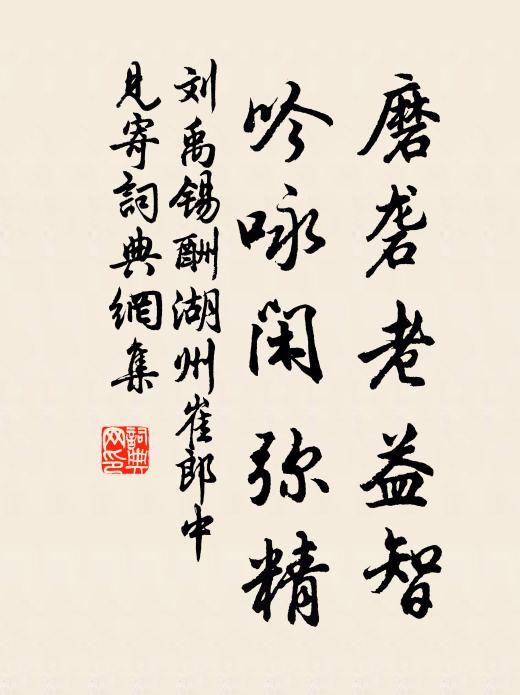 磨砻老益智
吟咏闲弥精
刘禹锡酬湖州崔郎中
見寄詞典網集
詞典
网印